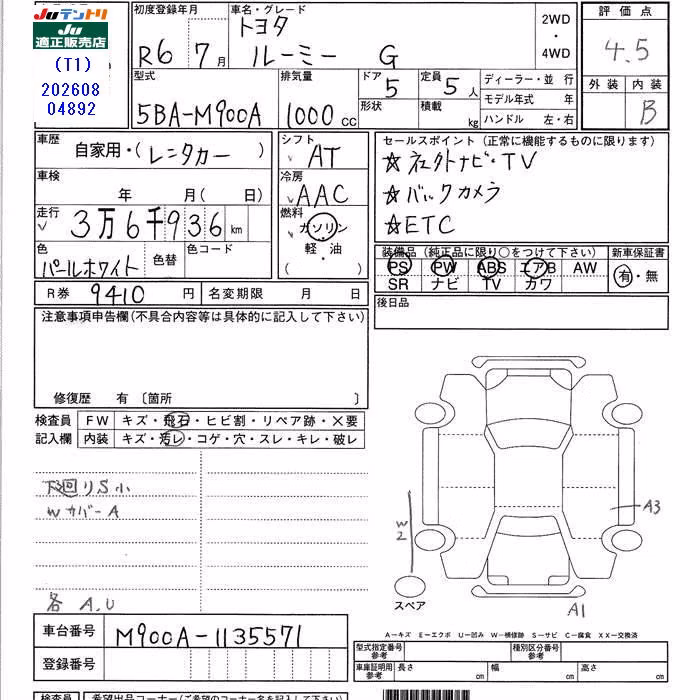 JUテントリ
JU
適正販売店
(T1)
202608
04892
初度登録年月
R6 7月
車名・グレード
トヨタ
ルーミー G
2WD
・
4WD
評価点
4.5
外装 内装
B
型式
5BA-M900A
排気量
1000 cc
ドア 5
形状
定員 5 人
積載 kg
ディーラー・並 行
モデル年式 年
ハンドル 左・右
車歴
自家用・(レンタカー)
シフト
AT
車検
年 月( 日)
冷房
AAC
走行
3万6千936 km
燃料
ガソリン
軽・油
( )
色
パールホワイト
色替
色コード
R券 9410 円
名変期限 月 日
セールスポイント (正常に機能するものに限ります)
☆社外ナビ・TV
☆バックカメラ
☆ETC
装備品 (純正品に限り○をつけて下さい)
新車保証書
PS PW ABS エアB AW
SR ナビ TV カワ
有・無
後日品
注意事項申告欄(不具合内容等は具体的に記入して下さい)
修復歴 有 〔箇所 〕
検査員
記入欄
FW キズ・飛石・ヒビ割・リペア跡・×要
内装 キズ・汚レ・コゲ・穴・スレ・キレ・破レ
下廻りS小
Wカバー A
各 A.U
W2
A3
スペア
A1
車台番号 M900A-1135571
登録番号
A-キズ E-エクボ U-凹み W-補修跡 S-サビ C-腐食 XX-交換済
型式指定番号
参考
種別区分番号
参考
車庫証明用
参考
長さ cm 幅 cm 高さ cm
検査員
希望出品コーナー(ご希望のコーナー名を記入して下さい)